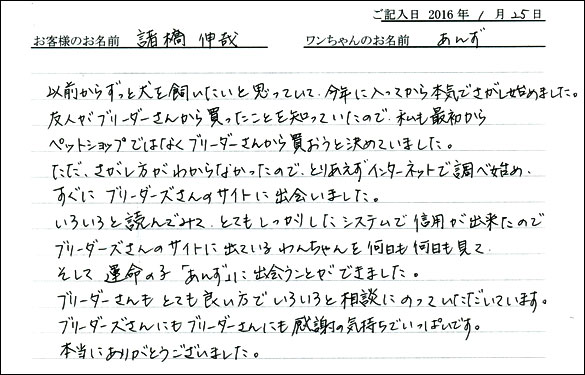 ご記入日 2016年 1月 25日
お客様のお名前 諸橋 伸哉 ワンちゃんのお名前 あんず
以前からずっと犬を飼いたいと思っていて、今年に入ってから本気でさがし始めました。
友人がブリーダーさんから買ったことを知っていたので、私も最初から
ペットショップではなくブリーダーさんから買おうと決めていました。
ただ、さがし方がわからなかったので、とりあえずインターネットで調べ始め、
すぐにブリーダーズさんのサイトに出会いました。
いろいろと読んでみて、とてもしっかりしたシステムで信用が出来たので
ブリーダーズさんのサイトに出ているわんちゃんを何日も何日も見て、
そして運命の子「あんず」に出会うことができました。
ブリーダーさんもとても良い方でいろいろと相談にのっていただいています。
ブリーダーズさんにもブリーダーさんにも感謝の気持ちでいっぱいです。
本当にありがとうございました。